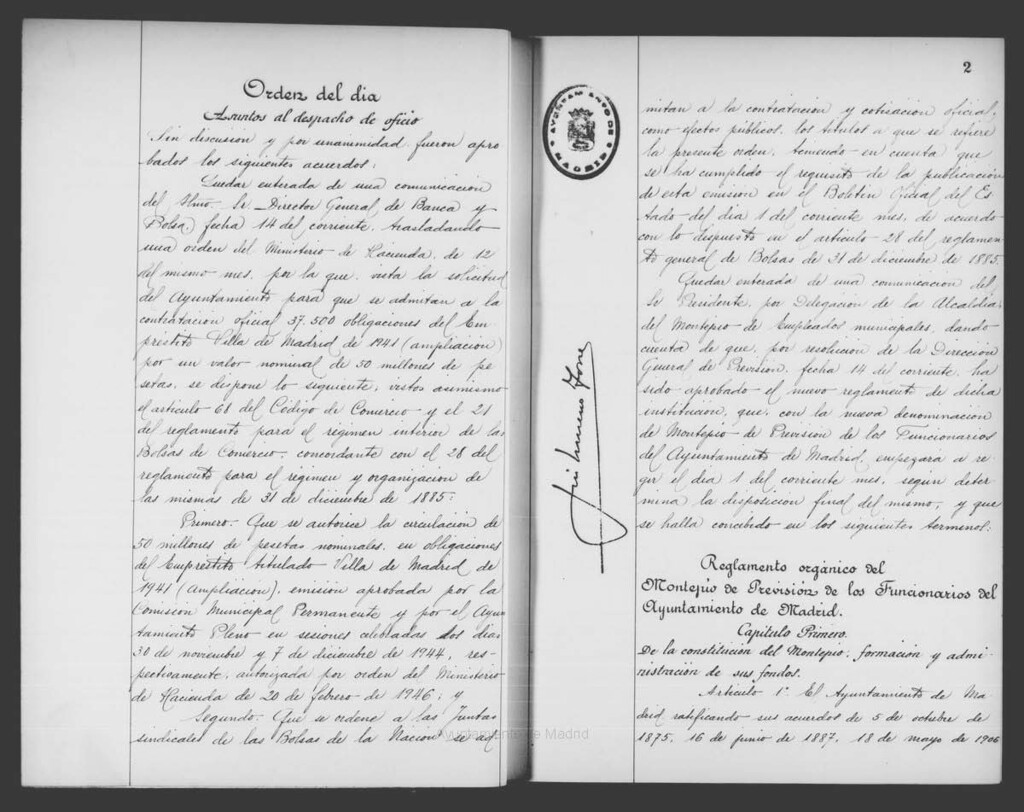 Orden del dia
Asuntos al despacho de oficio
Sin discusion y por unanimidad fueron apro
bados los siguientes acuerdos:
Quedar enterada de una comunicacion
del Ilmo. Sr. Director General de Banca y
Bolsa, fecha 14 del corriente, trasladando
una orden del Ministerio de Hacienda, de 12
del mismo mes, por la que, vista la solicitud
del Ayuntamiento para que se admitan a la
contratación oficial 37.500 obligaciones del Em-
prestito Villa de Madrid de 1941 (ampliacion)
por un valor nominal de 50 millones de pe
setas, se dispone lo siguiente, vistos asimismo
el articulo 68 del Código de Comercio y el 21
del reglamento para el régimen interior de las
Bolsas de Comercio, concordante con el 28 del
reglamento para el régimen y organizacion de
las mismas de 31 de diciembre de 1885:
Primero.- Que se autorice la circulacion de
50 millones de pesetas nominales, en obligaciones
del Emprestito titulado Villa de Madrid de
1941 (Ampliacion), emisión aprobada por la
Comisión Municipal Permanente y por el Ayun
tamiento Pleno en sesiones celebradas los dias
30 de noviembre y 7 de diciembre de 1944, res-
pectivamente, autorizada por orden del Ministerio
de Hacienda de 20 de febrero de 1946; y
Segundo.- Que se ordene a las Juntas
sindicales de las Bolsas de la Nacion se ad
2
AYUNTAMIENTO DE
MADRID
mitan a la contratación y cotizacion oficial,
como efectos públicos, los titulos a que se refiere
la presente orden, teniendo en cuenta que
se ha cumplido el requisito de la publicación
de esta emisión en el Boletin Oficial del Es
tado del dia 1 del corriente mes, de acuerdo
con lo dispuesto en el articulo 28 del reglamen
to general de Bolsas de 31 de diciembre de 1885.
Quedar enterada de una comunicacion del
Sr. Presidente, por Delegación de la Alcaldia,
del Montepio de Empleados municipales, dando
cuenta de que, por resolucion de la Dirección
General de Prevision, fecha 14 de corriente, ha
sido aprobado el nuevo reglamento de dicha
institución, que, con la nueva denominación
de Montepio de Prevision de los Funcionarios
del Ayuntamiento de Madrid, empezará a re
gir el dia 1 del corriente mes, según deter
mina la disposicion final del mismo, y que
se halla concebido en los siguientes terminos:
Reglamento orgánico del
Montepio de Previsión de los Funcionarios del
Ayuntamiento de Madrid.
Capitulo Primero.
De la constitución del Montepio, formación y admi-
nistración de sus fondos.
Articulo 1º. El Ayuntamiento de Ma
drid, ratificando sus acuerdos de 5 de octubre de
1875, 16 de junio de 1887, 18 de mayo de 1906
Ayuntamiento de Madrid